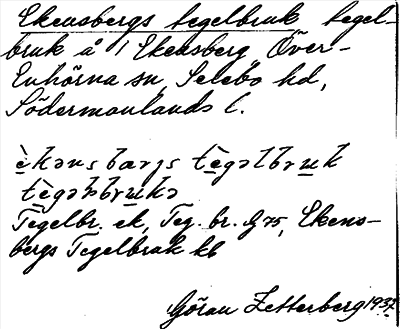 Ekensbergs tegelbruk tegel-
bruk å 1 Ekensberg Över-
Enhörna sn, Selebo hd,
Södermanlands l.
èkənsbærjs tègəlbruk
tègəlsbrukə
Tegelbr. ek, Teg. br. G 75, Ekens-
bergs Tegelbruk kb
Göran Zetterberg 1937